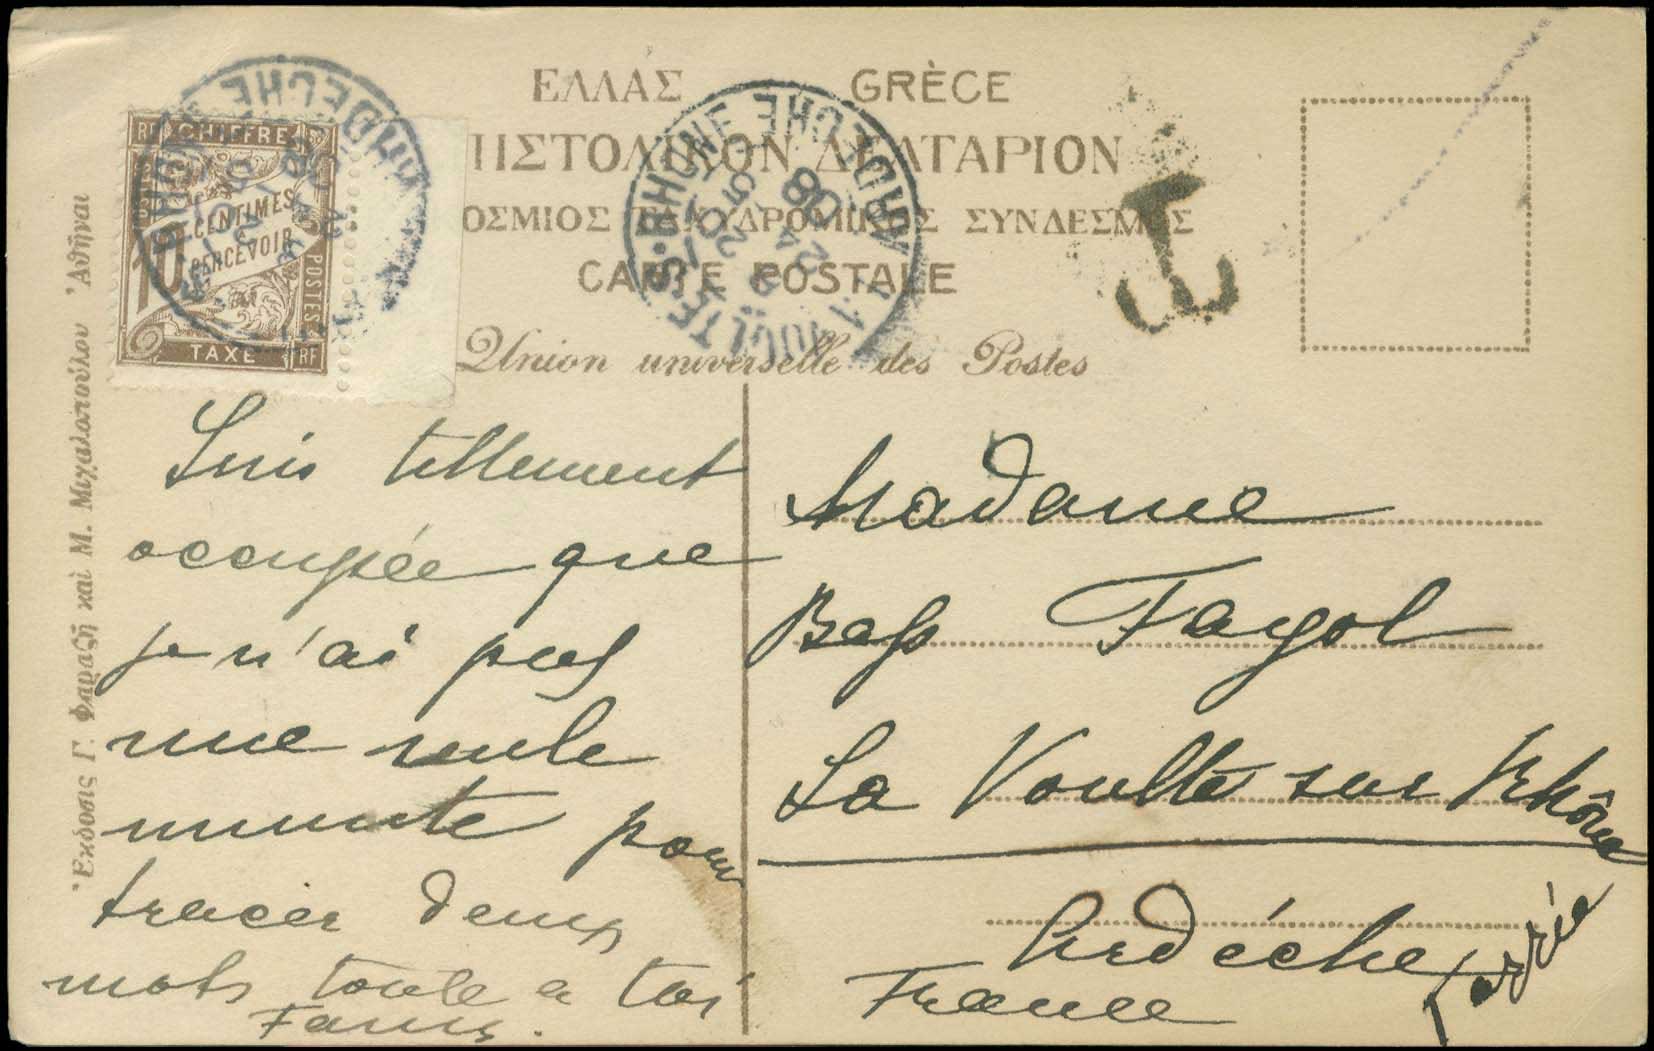 ΕΛΛΑΣ GRÈCE
ΠΙΣΤΟΛΙΚΟΝ ΔΕΛΤΑΡΙΟΝ
ΟΣΜΙΟΣ ΤΑΧΥΔΡΟΜΙΚΟΣ ΣΥΝΔΕΣΜΟΣ
CARTE POSTALE
Union universelle des Postes
RF CHIFFRE
10 CENTIMES
PERCEVOIR
POSTES
TAXE RF
LA VOULTE-S-RHONE ARDECHE
08
T
Ἔκδοσις Γ. Φαραζῆ καὶ Μ. Μιχαλοπούλου Ἀθῆναι
Suis tellement
occupée que
je n'ai pas
une seule
minute pour
tracer deux
mots toute a toi
Fanny.
Madame
Fayol
La Voulte sur Rhône
Ardéche
France